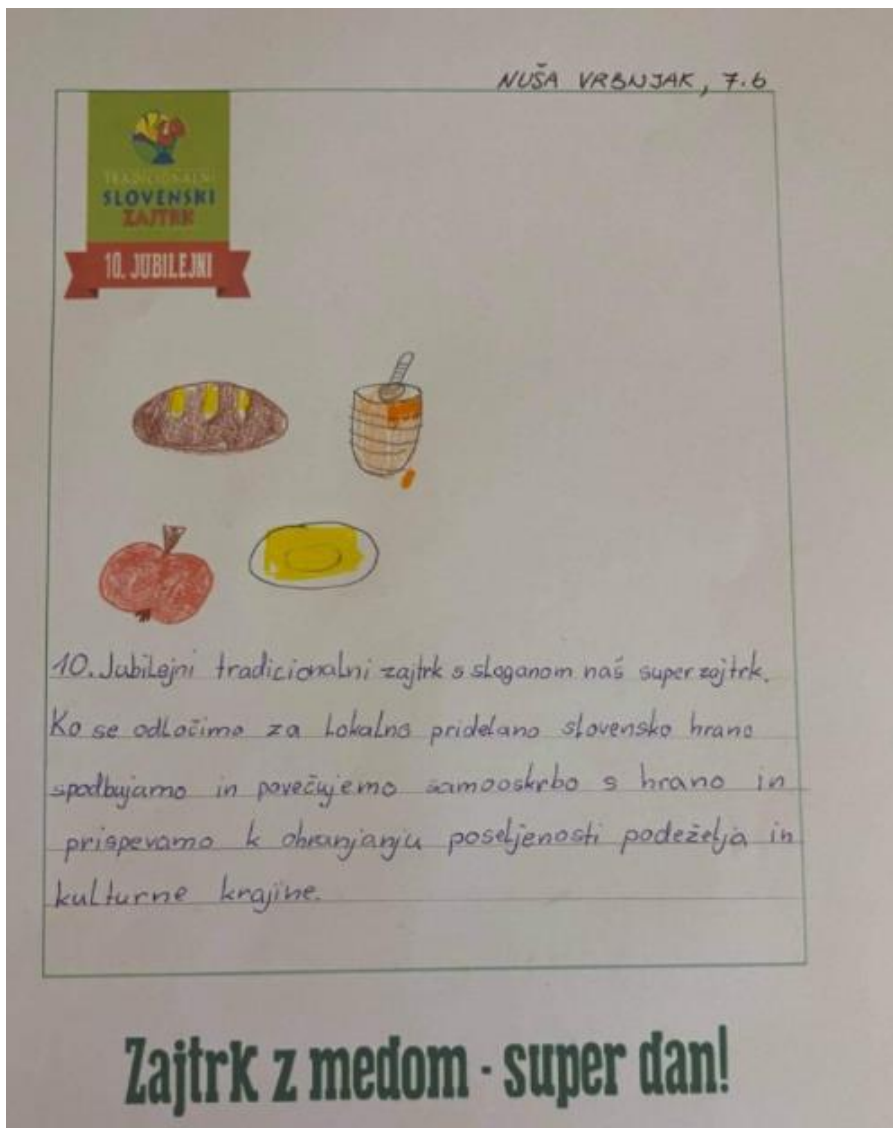 NUŠA VRBNJAK, 7.b
TRADICIONALNI
SLOVENSKI
ZAJTRK
10. JUBILEJNI
10. Jubilejni tradicionalni zajtrk s sloganom naš super zajtrk.
Ko se odločimo za lokalno pridelano slovensko hrano
spodbujamo in povečujemo samooskrbo s hrano in
prispevamo k ohranjanju poseljenosti podeželja in
kulturne krajine.
Zajtrk z medom - super dan!